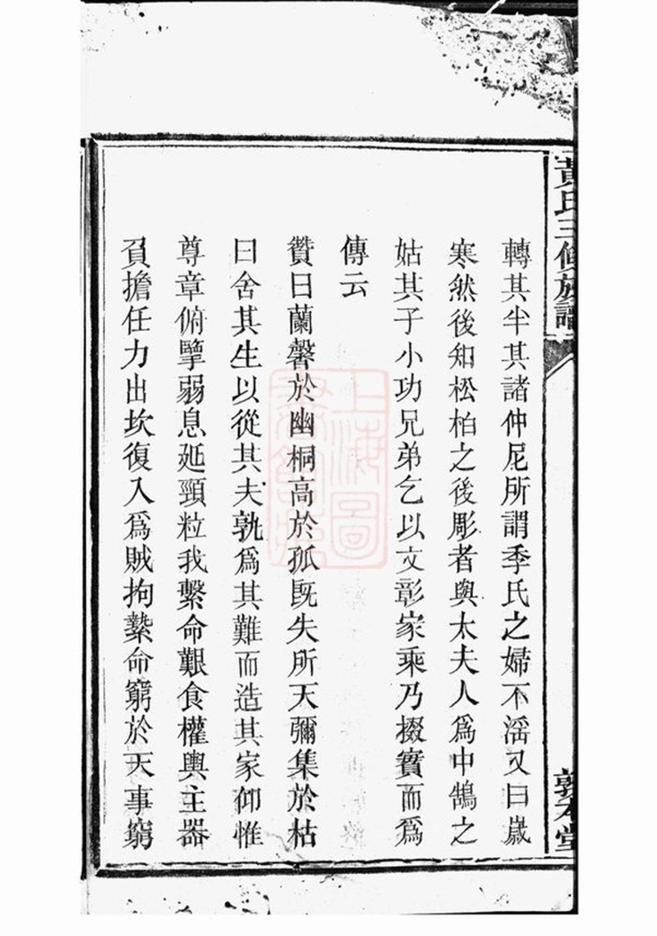 黃氏三修族譜
轉其半其諸仲尼所謂季氏之婦不淫又曰歲
寒然後知松柏之後彫者與太夫人爲中鵠之
姑其子小功兄弟乞以文彰家乘乃掇實而爲
傳云
贊曰蘭馨於幽桐高於孤旣失所天彌集於枯
曰舍其生以從其夫孰爲其難而造其家仰惟
尊章俯擥弱息延頸粒我繫命艱食權輿主器
負擔任力出坎復入爲賊拘縶命窮於天事窮
敦本堂
上海圖
書館藏